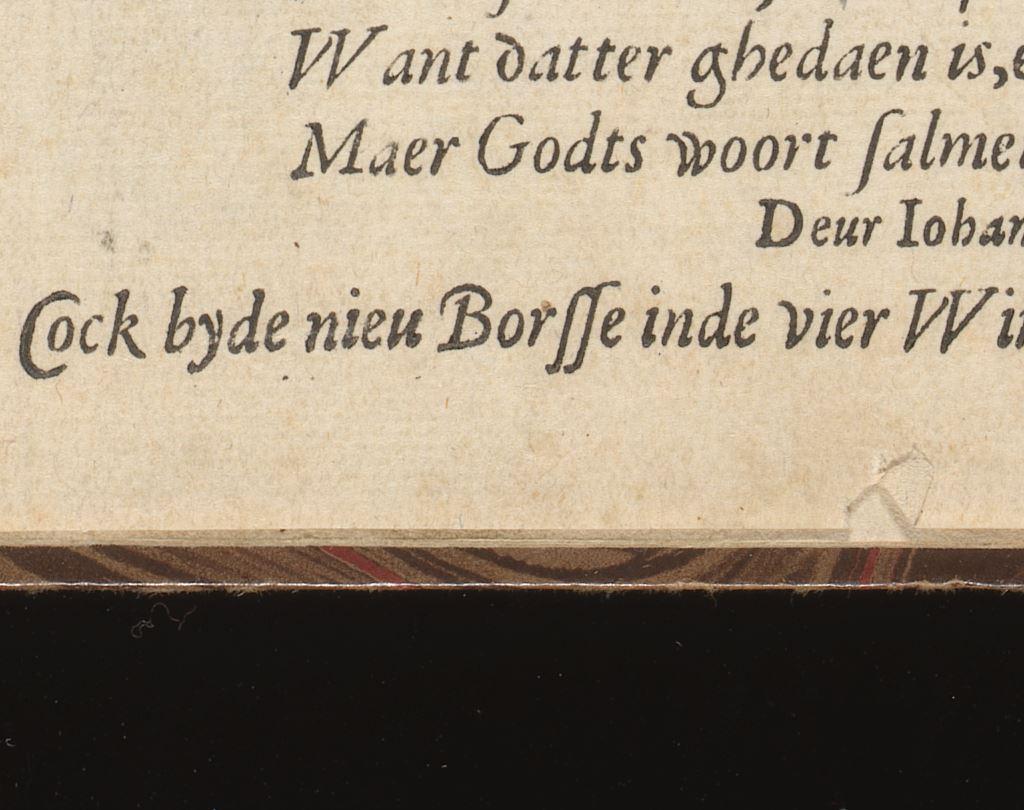 Want datter ghedaen is,
Maer Godts woort ſalme
Deur Iohan
Cock byde nieu Borſſe inde vier Wi